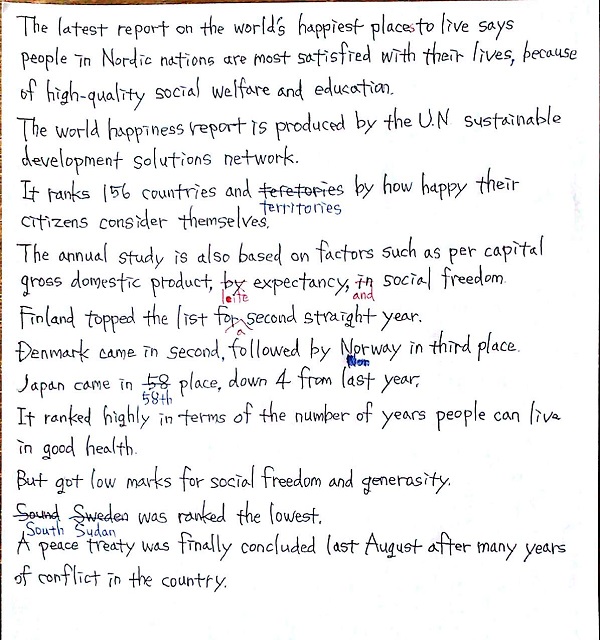 The latest report on the world's happiest places to live says
people in Nordic nations are most satisfied with their lives, because
of high-quality social welfare and education.
The world happiness report is produced by the U.N sustainable
development solutions network.
It ranks 156 countries and teretories by how happy their
territories
citizens consider themselves.
The annual study is also based on factors such as per capital
gross domestic product, by expectancy, in social freedom.
leife and
Finland topped the list for second straight year.
a
Denmark came in second, followed by Norway in third place.
Nor
Japan came in 58 place, down 4 from last year.
58th
It ranked highly in terms of the number of years people can live
in good health.
But got low marks for social freedom and generasity.
Sound Sweden was ranked the lowest.
South Sudan
A peace treaty was finally concluded last August after many years
of conflict in the country.